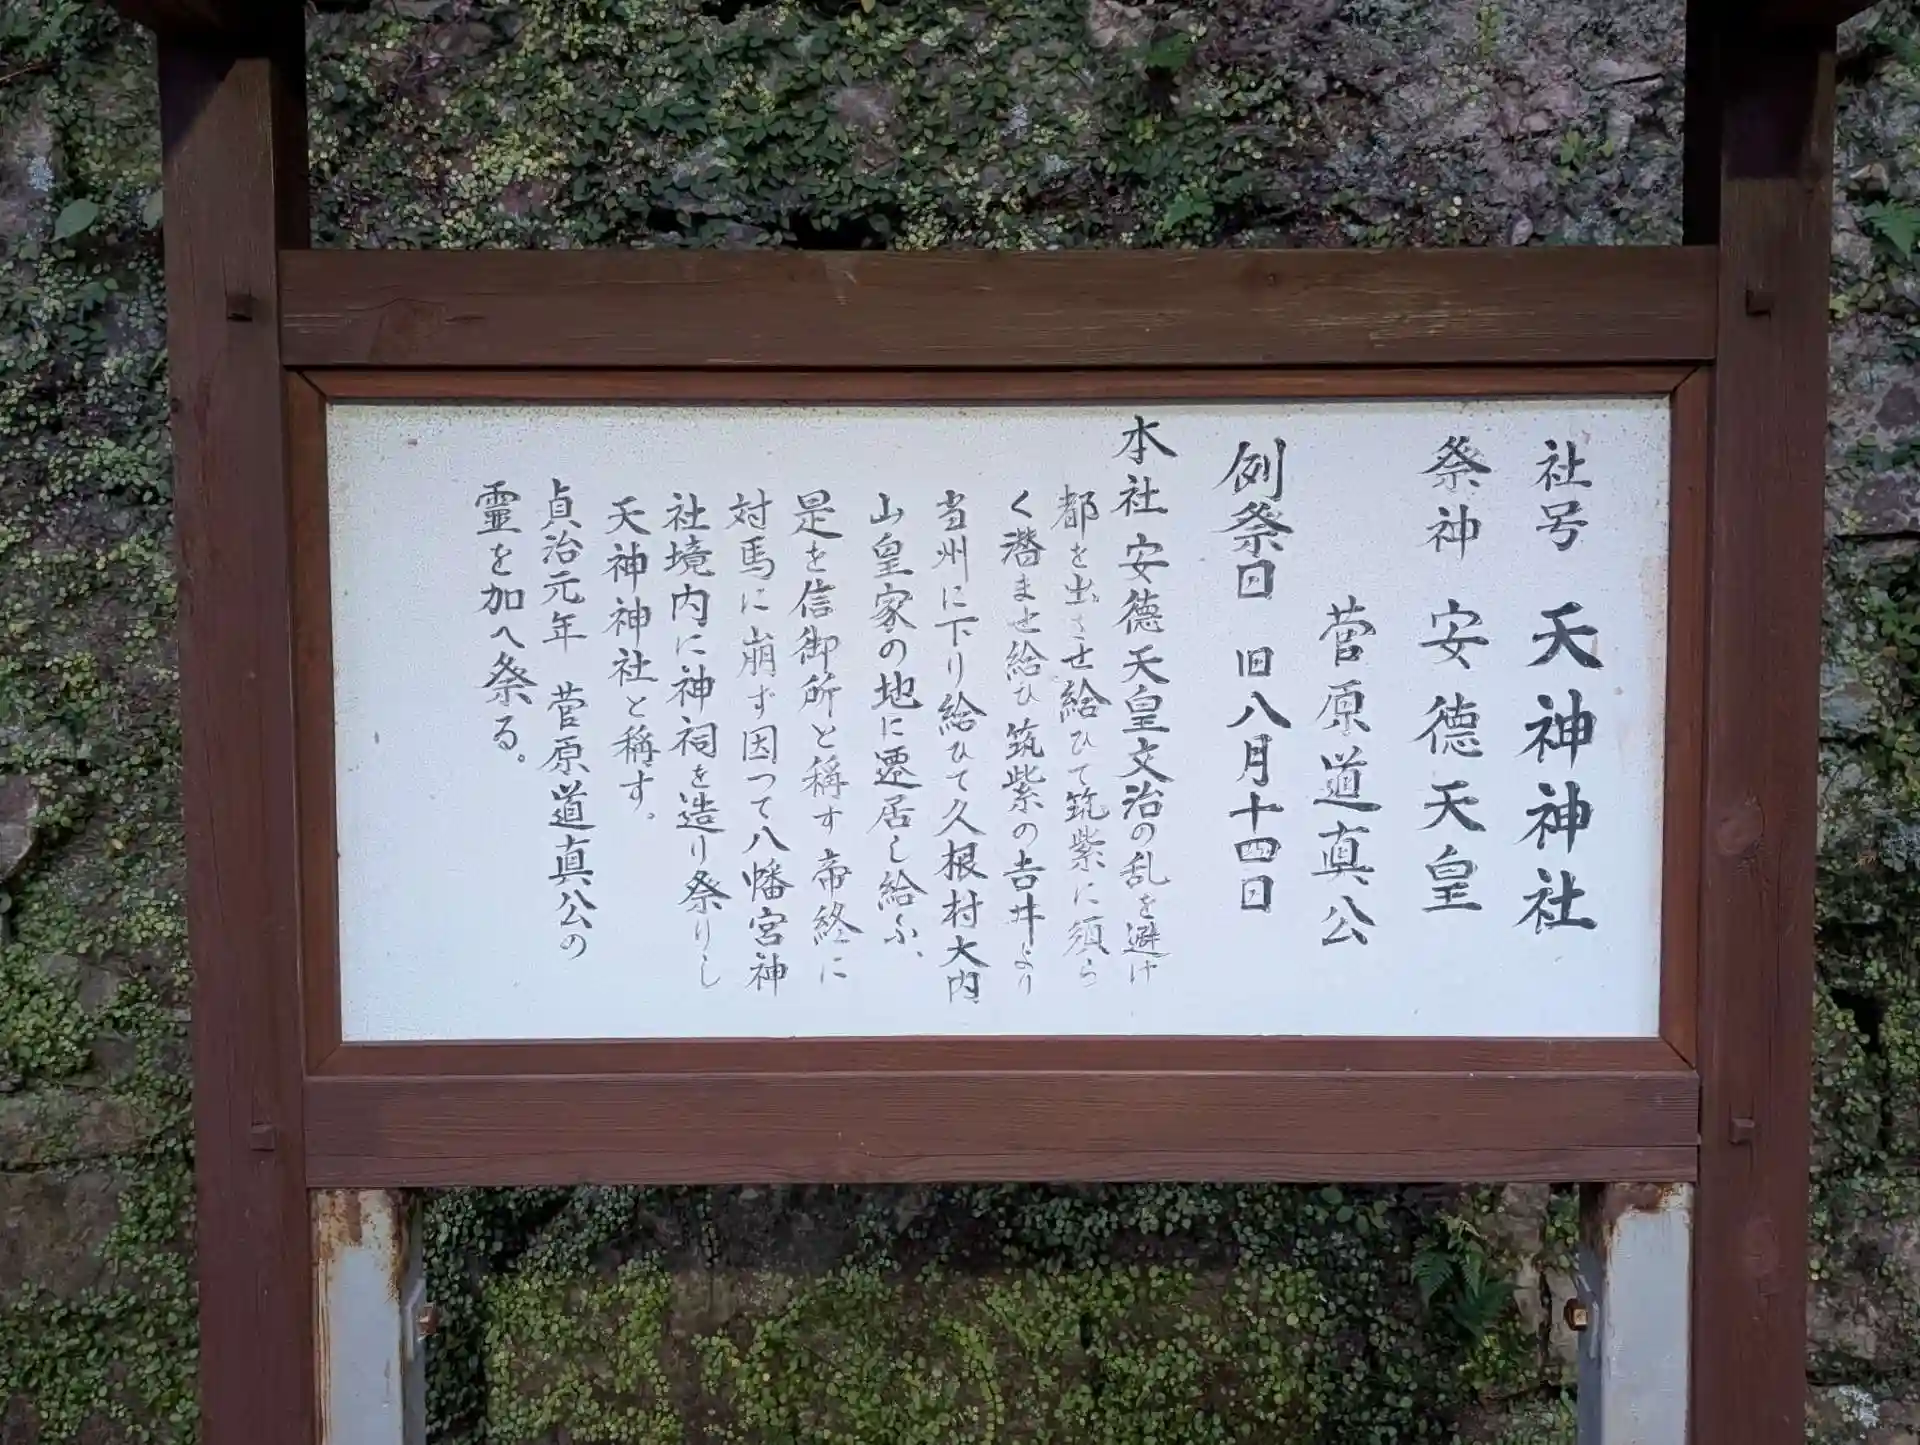 社号 天神神社
祭神 安徳天皇
菅原道真公
例祭日 旧八月十四日
本社 安徳天皇文治の乱を避け
都を出させ給ひて筑紫に須ら
く潜ませ給ひ筑紫の吉井より
当州に下り給ひて久根村大内
山皇家の地に遷居し給ふ、
是を信御所と稱す帝終に
対馬に崩ず因つて八幡宮神
社境内に神祠を造り祭りし
天神神社と稱す。
貞治元年 菅原道真公の
霊を加へ祭る。